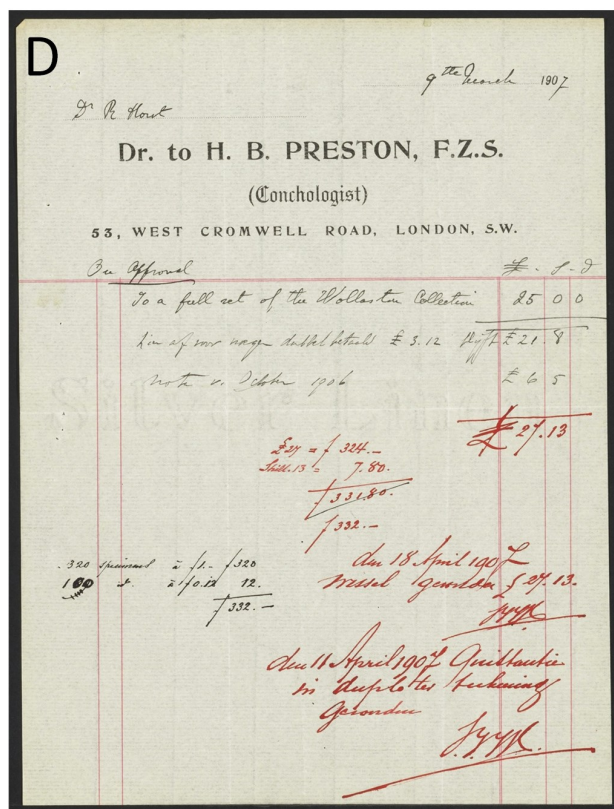 D
9th March 1907
Dr R Horst
Dr. to H. B. PRESTON, F.Z.S.
(Conchologist)
53, WEST CROMWELL ROAD, LONDON, S.W.
On Approval £ . s - d
To a full set of the Wollaston Collection 25 0 0
hier af voor vorigen dubbel betaald £ 3.12 blijft £ 21.8
nota v. October 1906 £ 6 5
£ 27.13
£ 27 = ƒ 324.—
Shill. 13 = 7.80.
ƒ 331.80.
ƒ 332.—
320 specimens à ƒ1.- ƒ320
100 d. à ƒ0.12 12.
ƒ332.—
den 18 April 1907
wissel gezonden £ 27.13.
den 11 April 1907 Quittantie
in duplo ter teekening
Gezonden